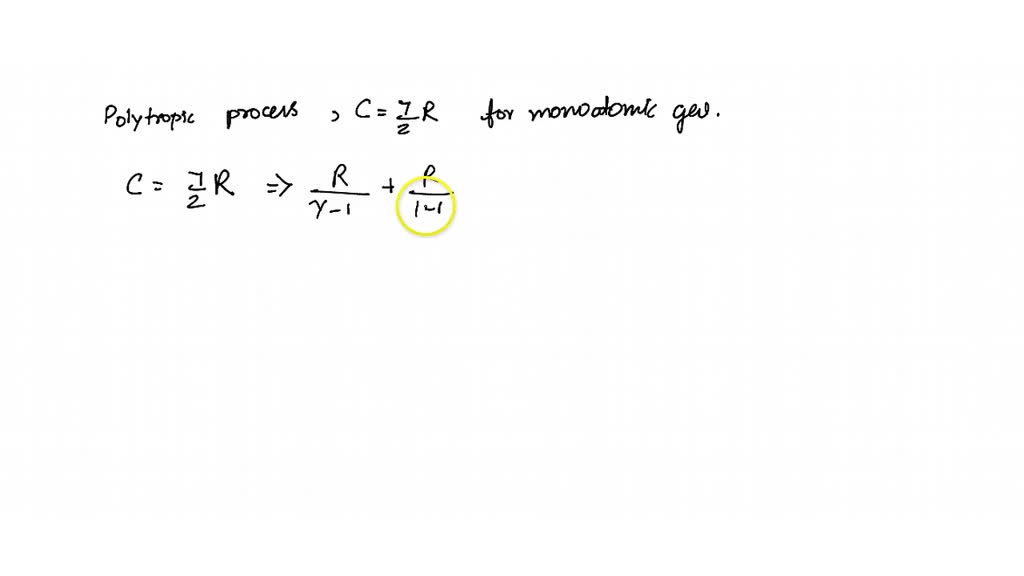 Polytropic process, C = 7/2 R for monoatomic gas.
C = 7/2 R => R/γ-1 + R/1-1